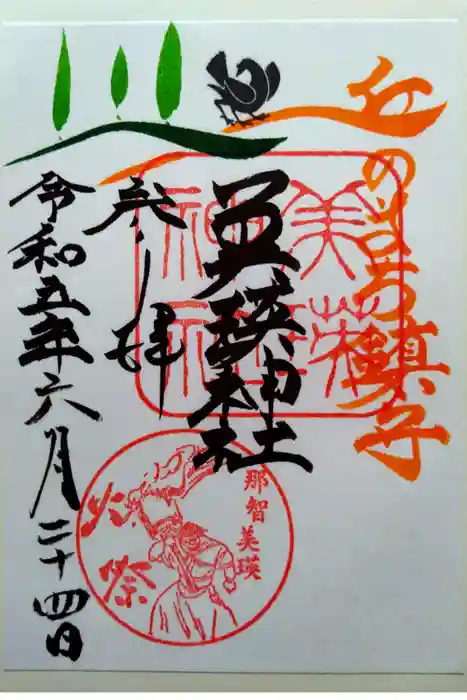 丘のまち鎮守
美瑛神社
美瑛
神社
奉拝
令和五年六月二十四日
那智美瑛
火祭